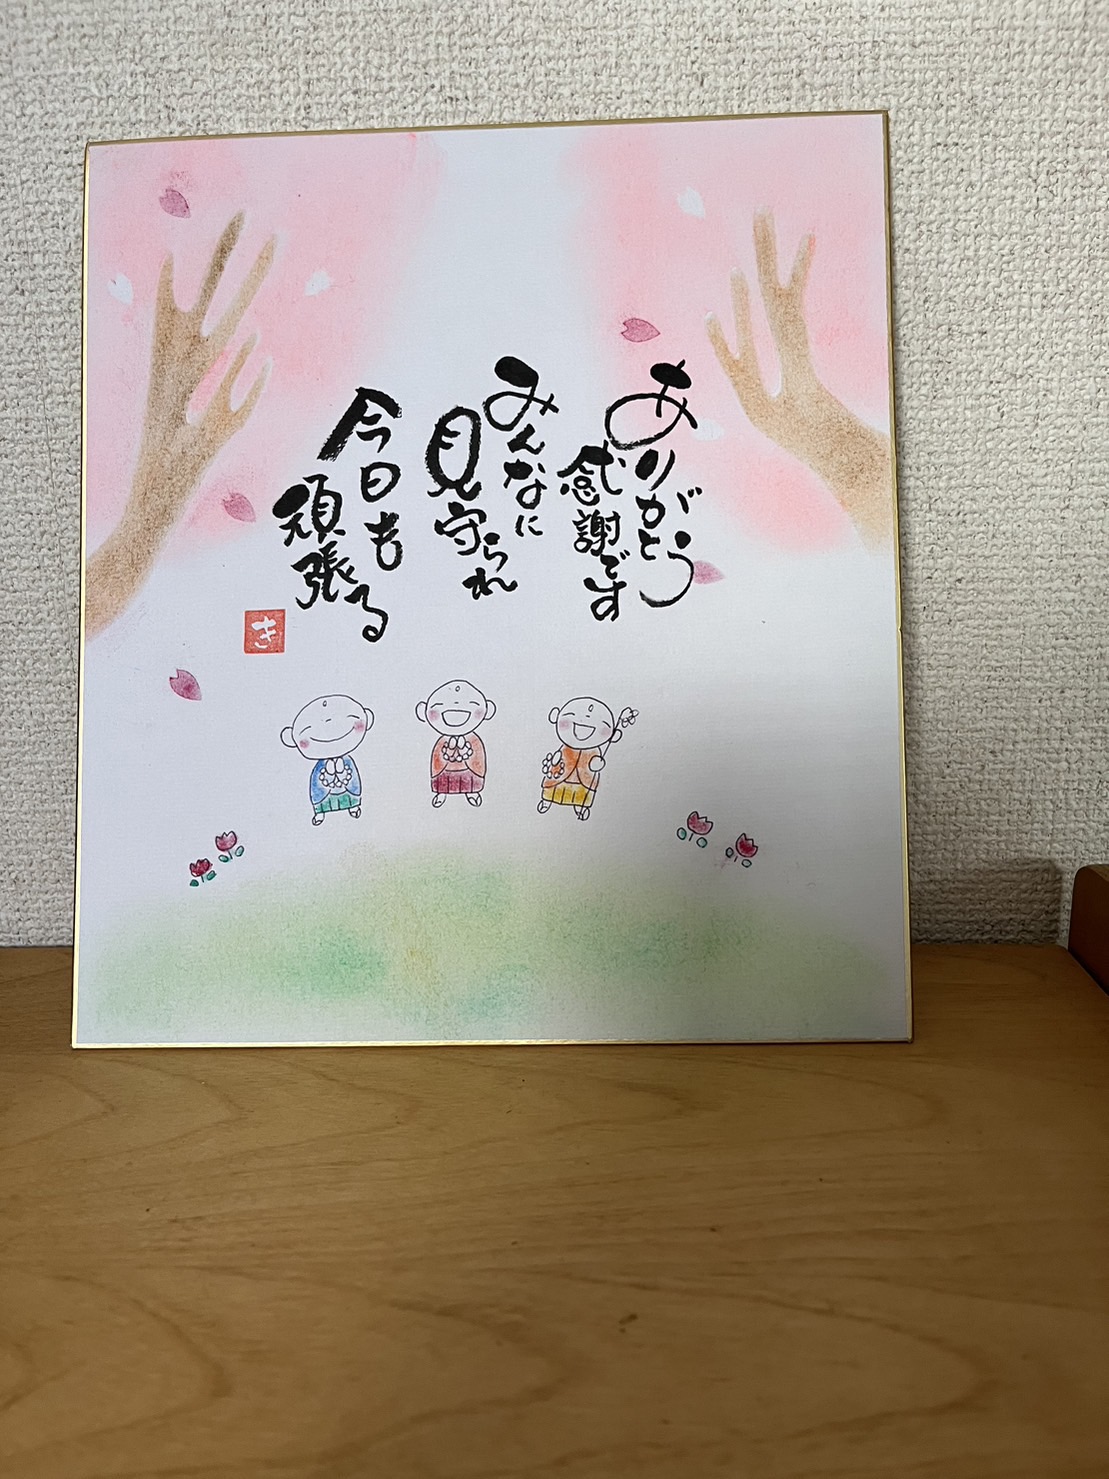 ありがとう
感謝です
みんなに
見守られ
今日も
頑張る
き